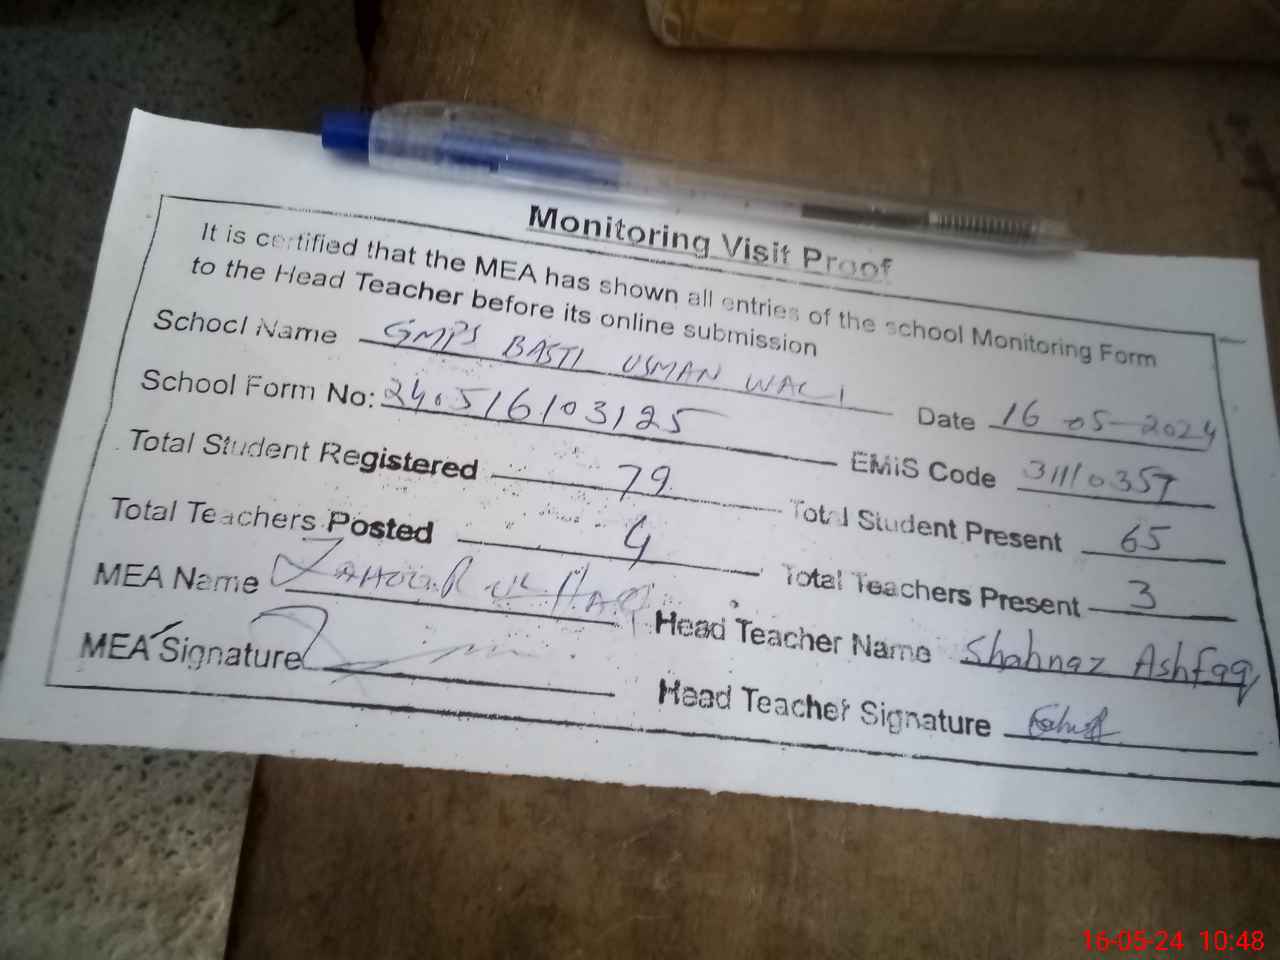 Monitoring Visit Proof
It is certified that the MEA has shown all entries of the school Monitoring Form
to the Head Teacher before its online submission
School Name GMPS BASTI USMAN WALI
Date 16-05-2024
School Form No: 240516103125
EMiS Code 31110357
Total Student Registered 79
Total Student Present 65
Total Teachers Posted 4
Total Teachers Present 3
MEA Name Zahoor ul Haq
Head Teacher Name Shahnaz Ashfaq
MEA Signature
Head Teacher Signature
16-05-24 10:48